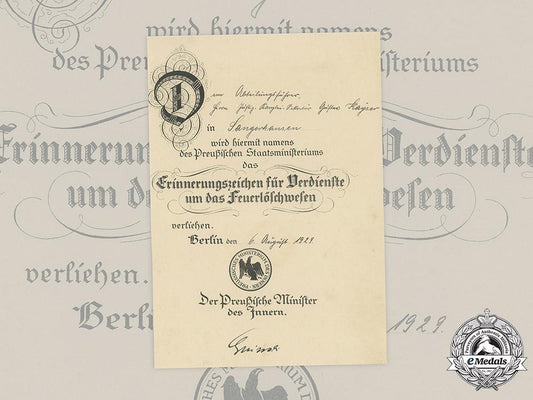 Dem Abteilungsführer
Herrn Gustav Kayser
in Sangerhausen
wird hiermit namens
des Preußischen Staatsministeriums
das
Erinnerungszeichen für Verdienste
um das Feuerlöschwesen
verliehen.
Berlin den 6. August 1929.
PREUSSISCHES MINISTERIUM DES INNERN
Der Preußische Minister
des Innern.
wird hiermit namens
des Preu
isteriums
Erinnerungs
Verdienste
um da
wesen
verliehen.
Berlin
1929.
HES MINISTERIUM D
eMedals